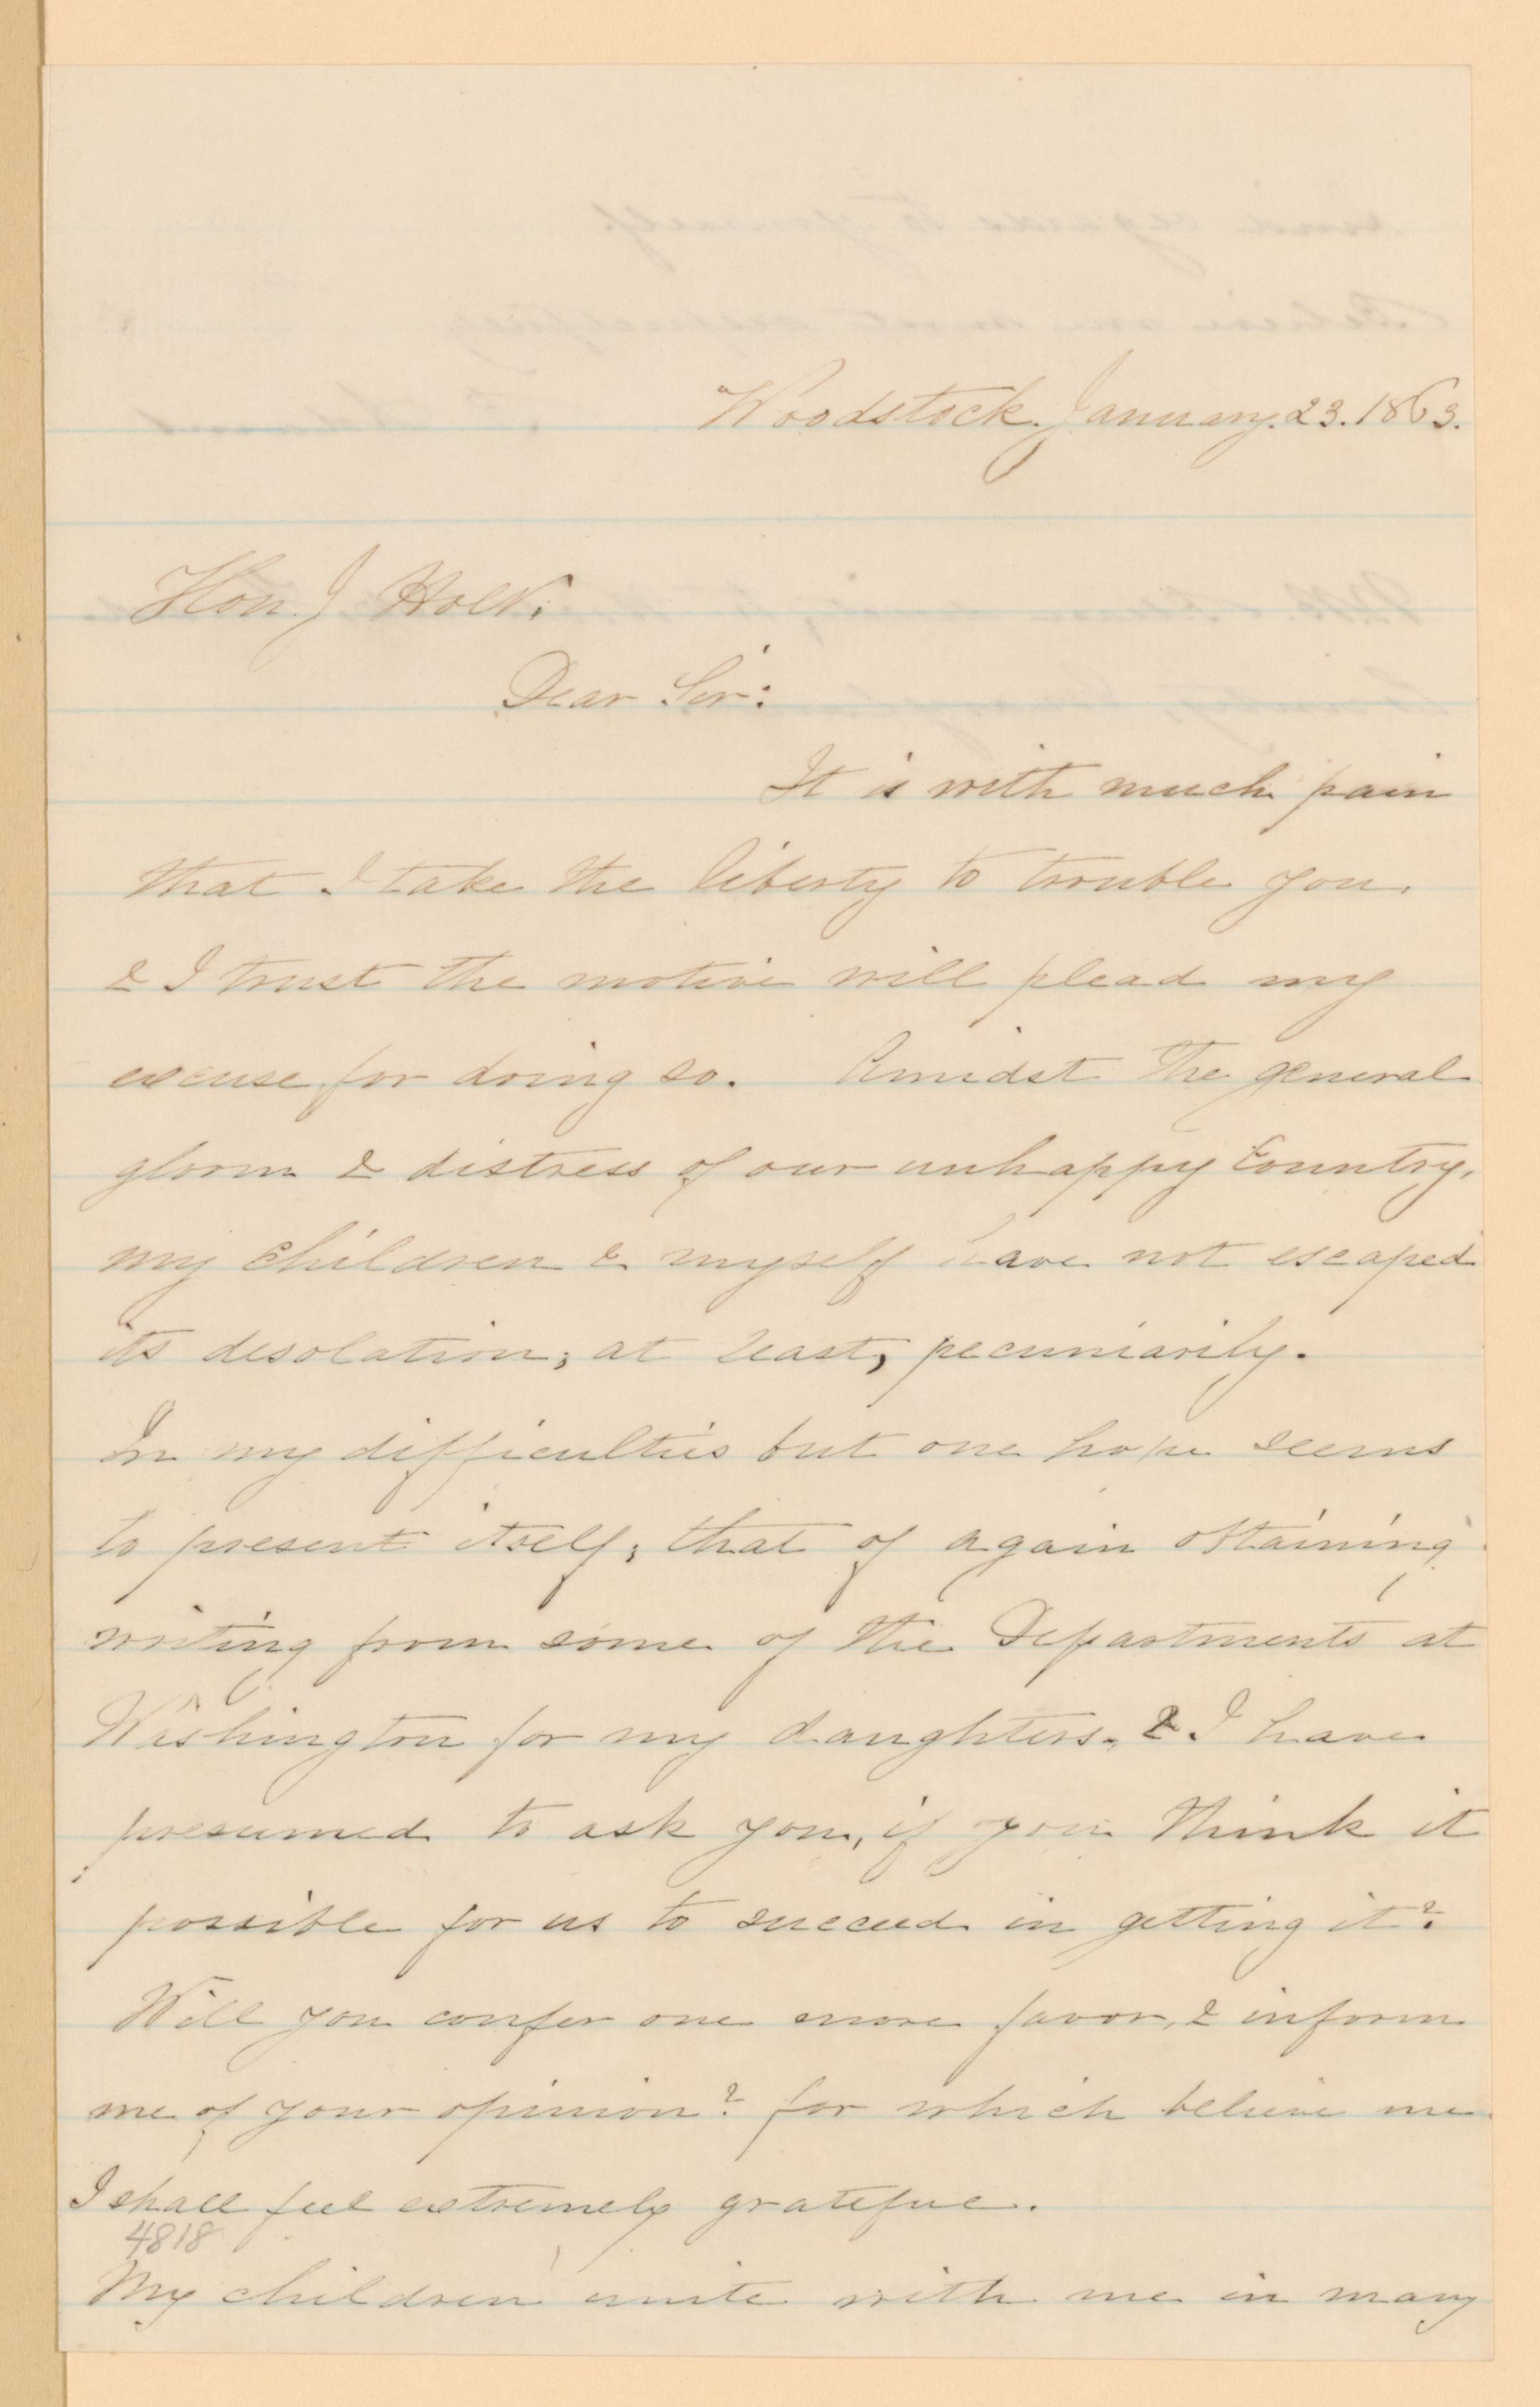 Woodstock. January. 23. 1863.
Hon. J Holt.
Dear Sir:
It is with much pain
that I take the liberty to trouble you.
& I trust the motive will plead my
excuse for doing so. Amidst the general
gloom & distress of our unhappy Country,
my children & myself have not escaped
its desolation; at least, pecuniarily.
In my difficulties but one hope seems
to present itself; that of again obtaining
writing from some of the Departments at
Washington for my daughters. & I have
presumed to ask you, if you think it
possible for us to succeed in getting it?
Will you confer one more favor, & inform
me of your opinion? for which believe me
I shall feel extremely grateful.
4818
My children unite with me in many